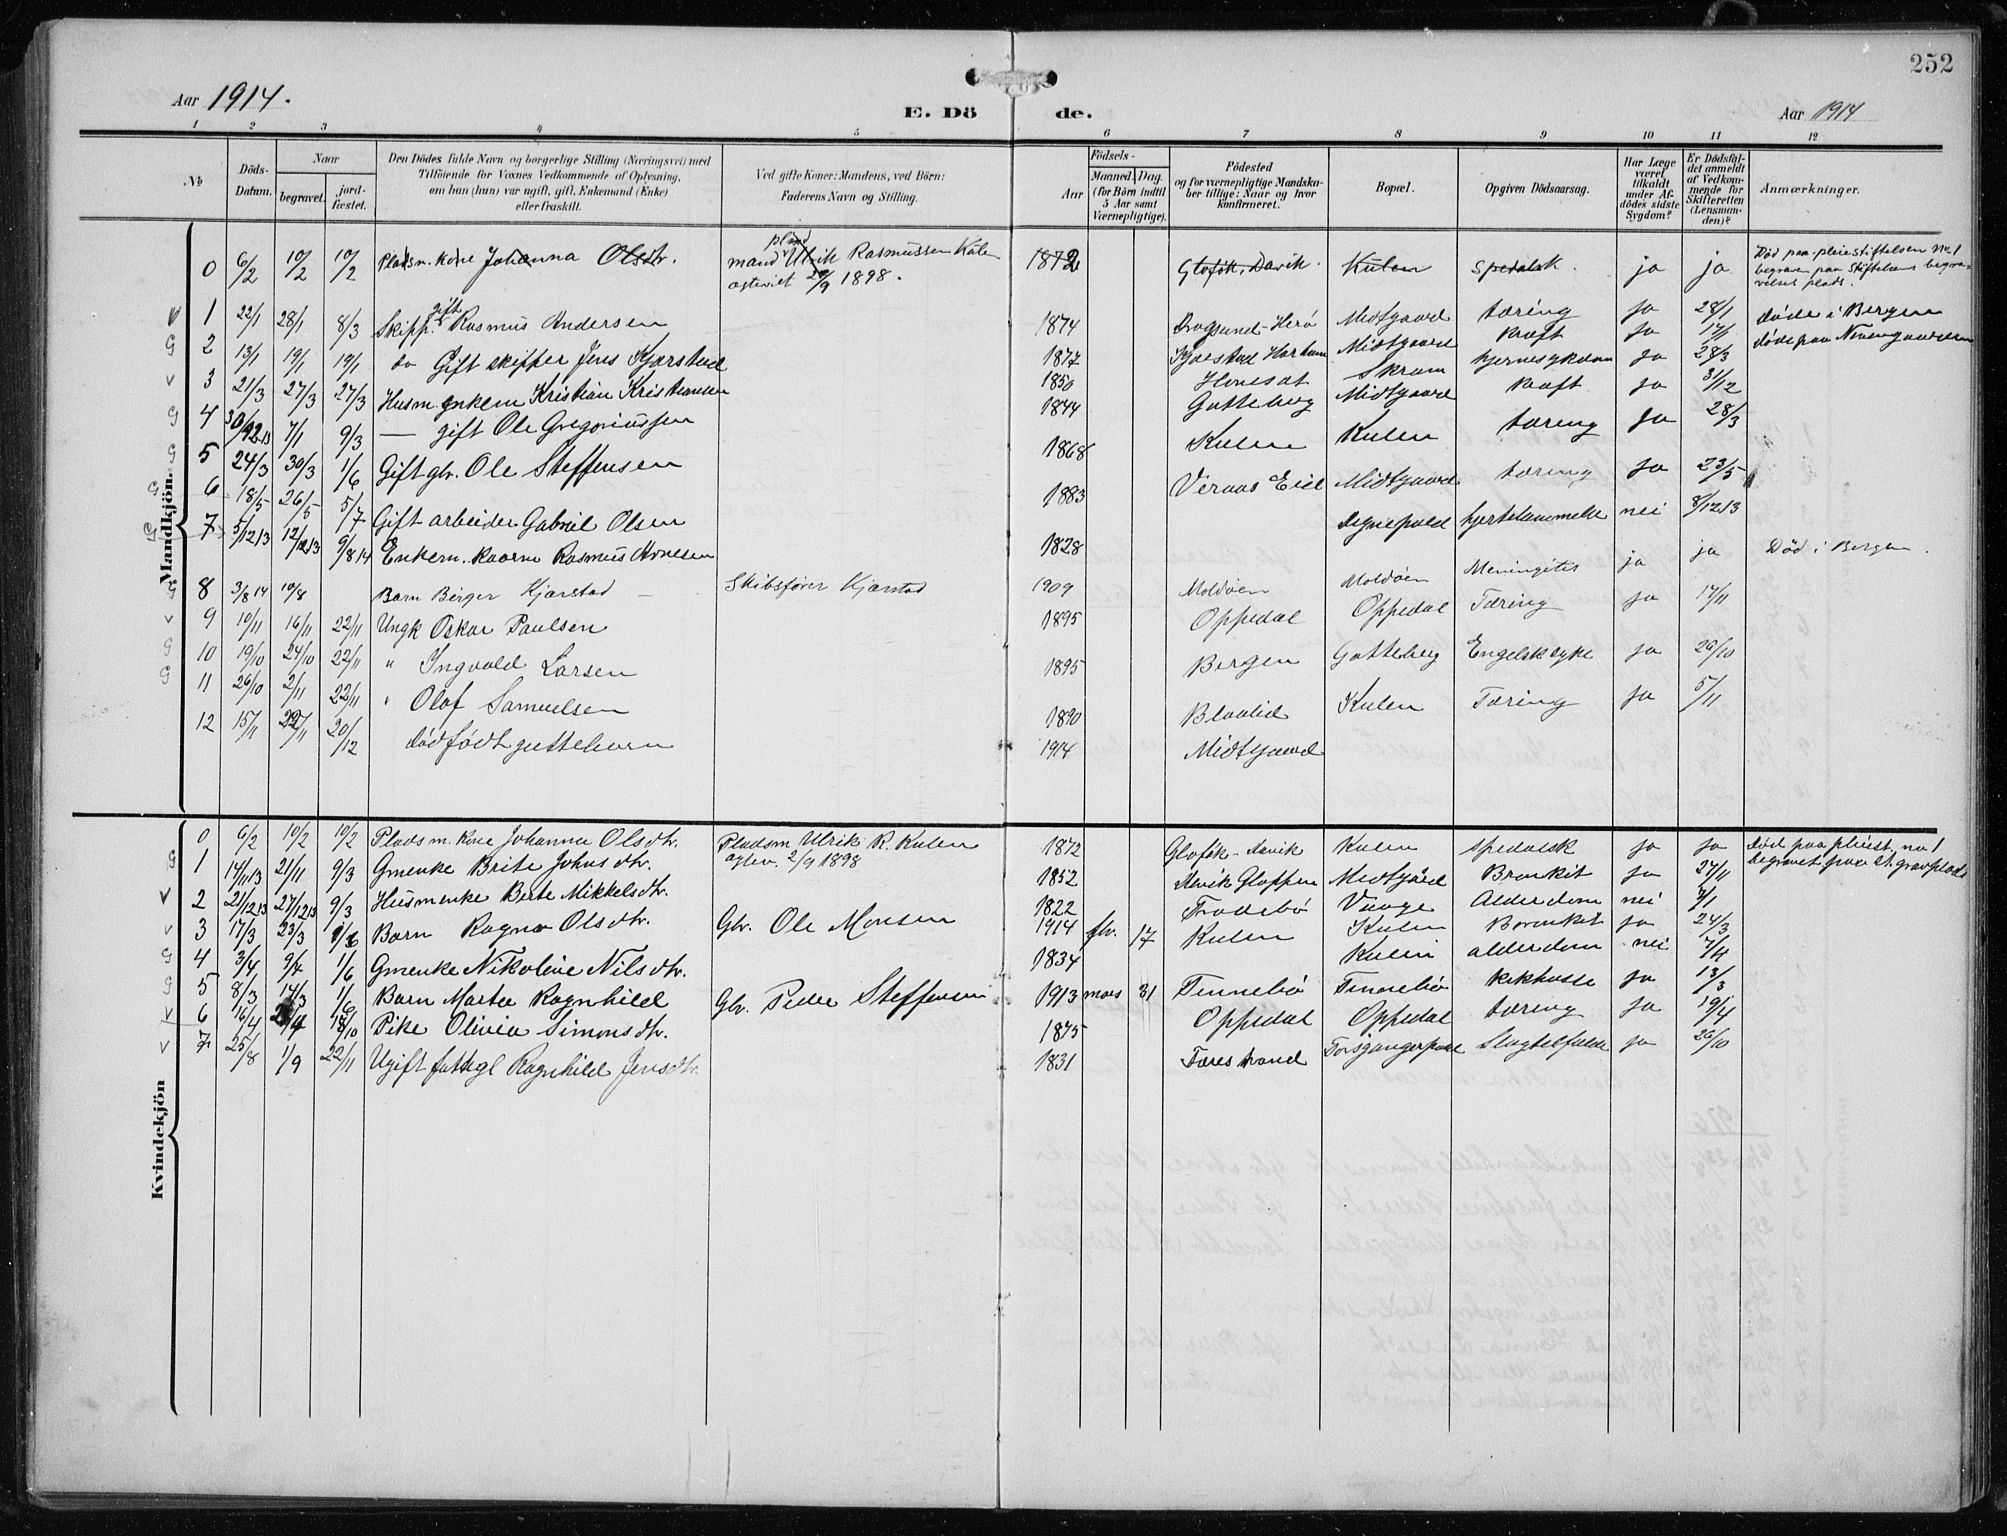 252
Aar 1914.
E. Dö de.
Aar 1914
1 2 3 4 5 6 7 8 9 10 11 12
No
Döds-Datum.
Naar
begravet.
jord-fæstet.
Den Dödes fulde Navn og borgerlige Stilling (Næringsvei) med
Tilföiende for Voxnes Vedkommende af Oplysning,
om han (hun) var ugift, gift, Enkemand (Enke)
eller fraskilt.
Ved gifte Koner: Mandens, ved Börn:
Faderens Navn og Stilling.
Födsels-
Aar
Maaned. Dag.
(for Börn indtil
5 Aar samt
Værnepligtige).
Födested
og for værnepligtige Mandska-
ber tillige: Naar og hvor
konfirmeret.
Bopæl.
Opgiven Dödsaarsag.
Har Læge
været
tilkaldt
under Af-
dödes sidste
Sygdom?
Er Dödsfal-
det anmeldt
af Vedkom-
mende for
Skifteretten
(Lensman-
den)?
Anmærkninger.
Mandkjön.
0 6/2 10/2 10/2 Pladsm. kone Johanna Olsdtr. pladsmand Ulrik Rasmussen Kulen 1872 Gloføk, Davik Kulen Spedalsk ja ja Død paa pleiestiftelsen no 1 begraven paa Stiftelsens begravelses plads.
1 22/1 28/1 8/3 Skipp. gift Rasmus Andersen 1874 Herø Midtgaard tæring ja 28/1 døde i Bergen
2 13/1 19/1 19/1 do Gift skipper Jens Kjærstad 1877 Kjærstad Harham Midtgaard kræft ja 17/1
3 21/3 27/3 27/3 Husm. enkem Kristian Kristiansen 1850 Skram ja 28/3
4 30/12 13 7/1 9/3 — gift Ole Gregoriussen 1844 Gotteberg Midtgaard kræft ja 31/12
5 24/3 30/3 1/6 Gift gbr. Ole Steffensen 1868 Kulen Kulen tæring ja 28/3
6 18/5 26/5 5/7 Gift arbeider Gabriel Olsen 1883 Midtgaard tæring ja 23/5
7 5/12 13 12/12 13 9/8 14 Enkem. Rasmus Arnesen 1828 hjertelammelse nei 8/12 13
8 3/8 14 10/8 Barn Birger Kjærstad Skibsfører Kjærstad 1909 Moldøen Moldøen Meningitis ja ja Død i Bergen.
9 10/11 16/11 22/11 Ungk Oskar Paulsen 1895 Oppedal Oppedal Tæring ja 17/11
10 19/10 24/10 22/11 " Ingvald Larsen 1895 Bergen Gotteberg Engelsk syke ja 26/10
11 26/10 2/11 22/11 " Olaf Samuelsen 1890 Blaalid Kulen Tæring ja 5/11
12 15/11 22/11 20/12 dødfødt guttebarn 1914 Midtgaard
Kvindekjön
0 6/2 10/2 10/2 Pladsm. kone Johanna Olsdtr. Pladsm Ulrik R. Kulen 2/9 1898 1872 Gloføk - Davik Kulen Spedalsk ja ja død paa pleiest. no 1 begravet paa st. gravplads
1 14/11 13 21/11 9/3 Gmenke Brite Johnsdtr. 1852 Davik Gloppen Midtgård Bronkit ja 27/11
2 21/12 13 27/12 13 9/3 Husmenke Berte Mikkelsdtr. 1822 Vaage Alderdom nei 7/1
3 17/3 23/3 1/6 Barn Ragna Olsdtr. Gbr. Ole Monsen 1914 fbr. 17 Kulen Kulen Bronkit ja 24/3
4 3/4 9/4 1/6 Gmenke Nikoline Nilsdtr. 1834 Kulen alderdom nei 7/4
5 8/3 14/3 1/6 Barn Marta Ragnhild Gbr. Peder Steffensen 1913 mars 31 Tennebø Tennebø kikhoste ja 13/3
6 16/4 23/4 18/10 Pike Olivia Simonsdtr. 1875 Oppedal Oppedal tæring ja 19/4
7 25/8 1/9 22/11 Ugift fattigl Ragnhild Jensdtr. 1831 Færestrand Slagtilfælde ja 26/10